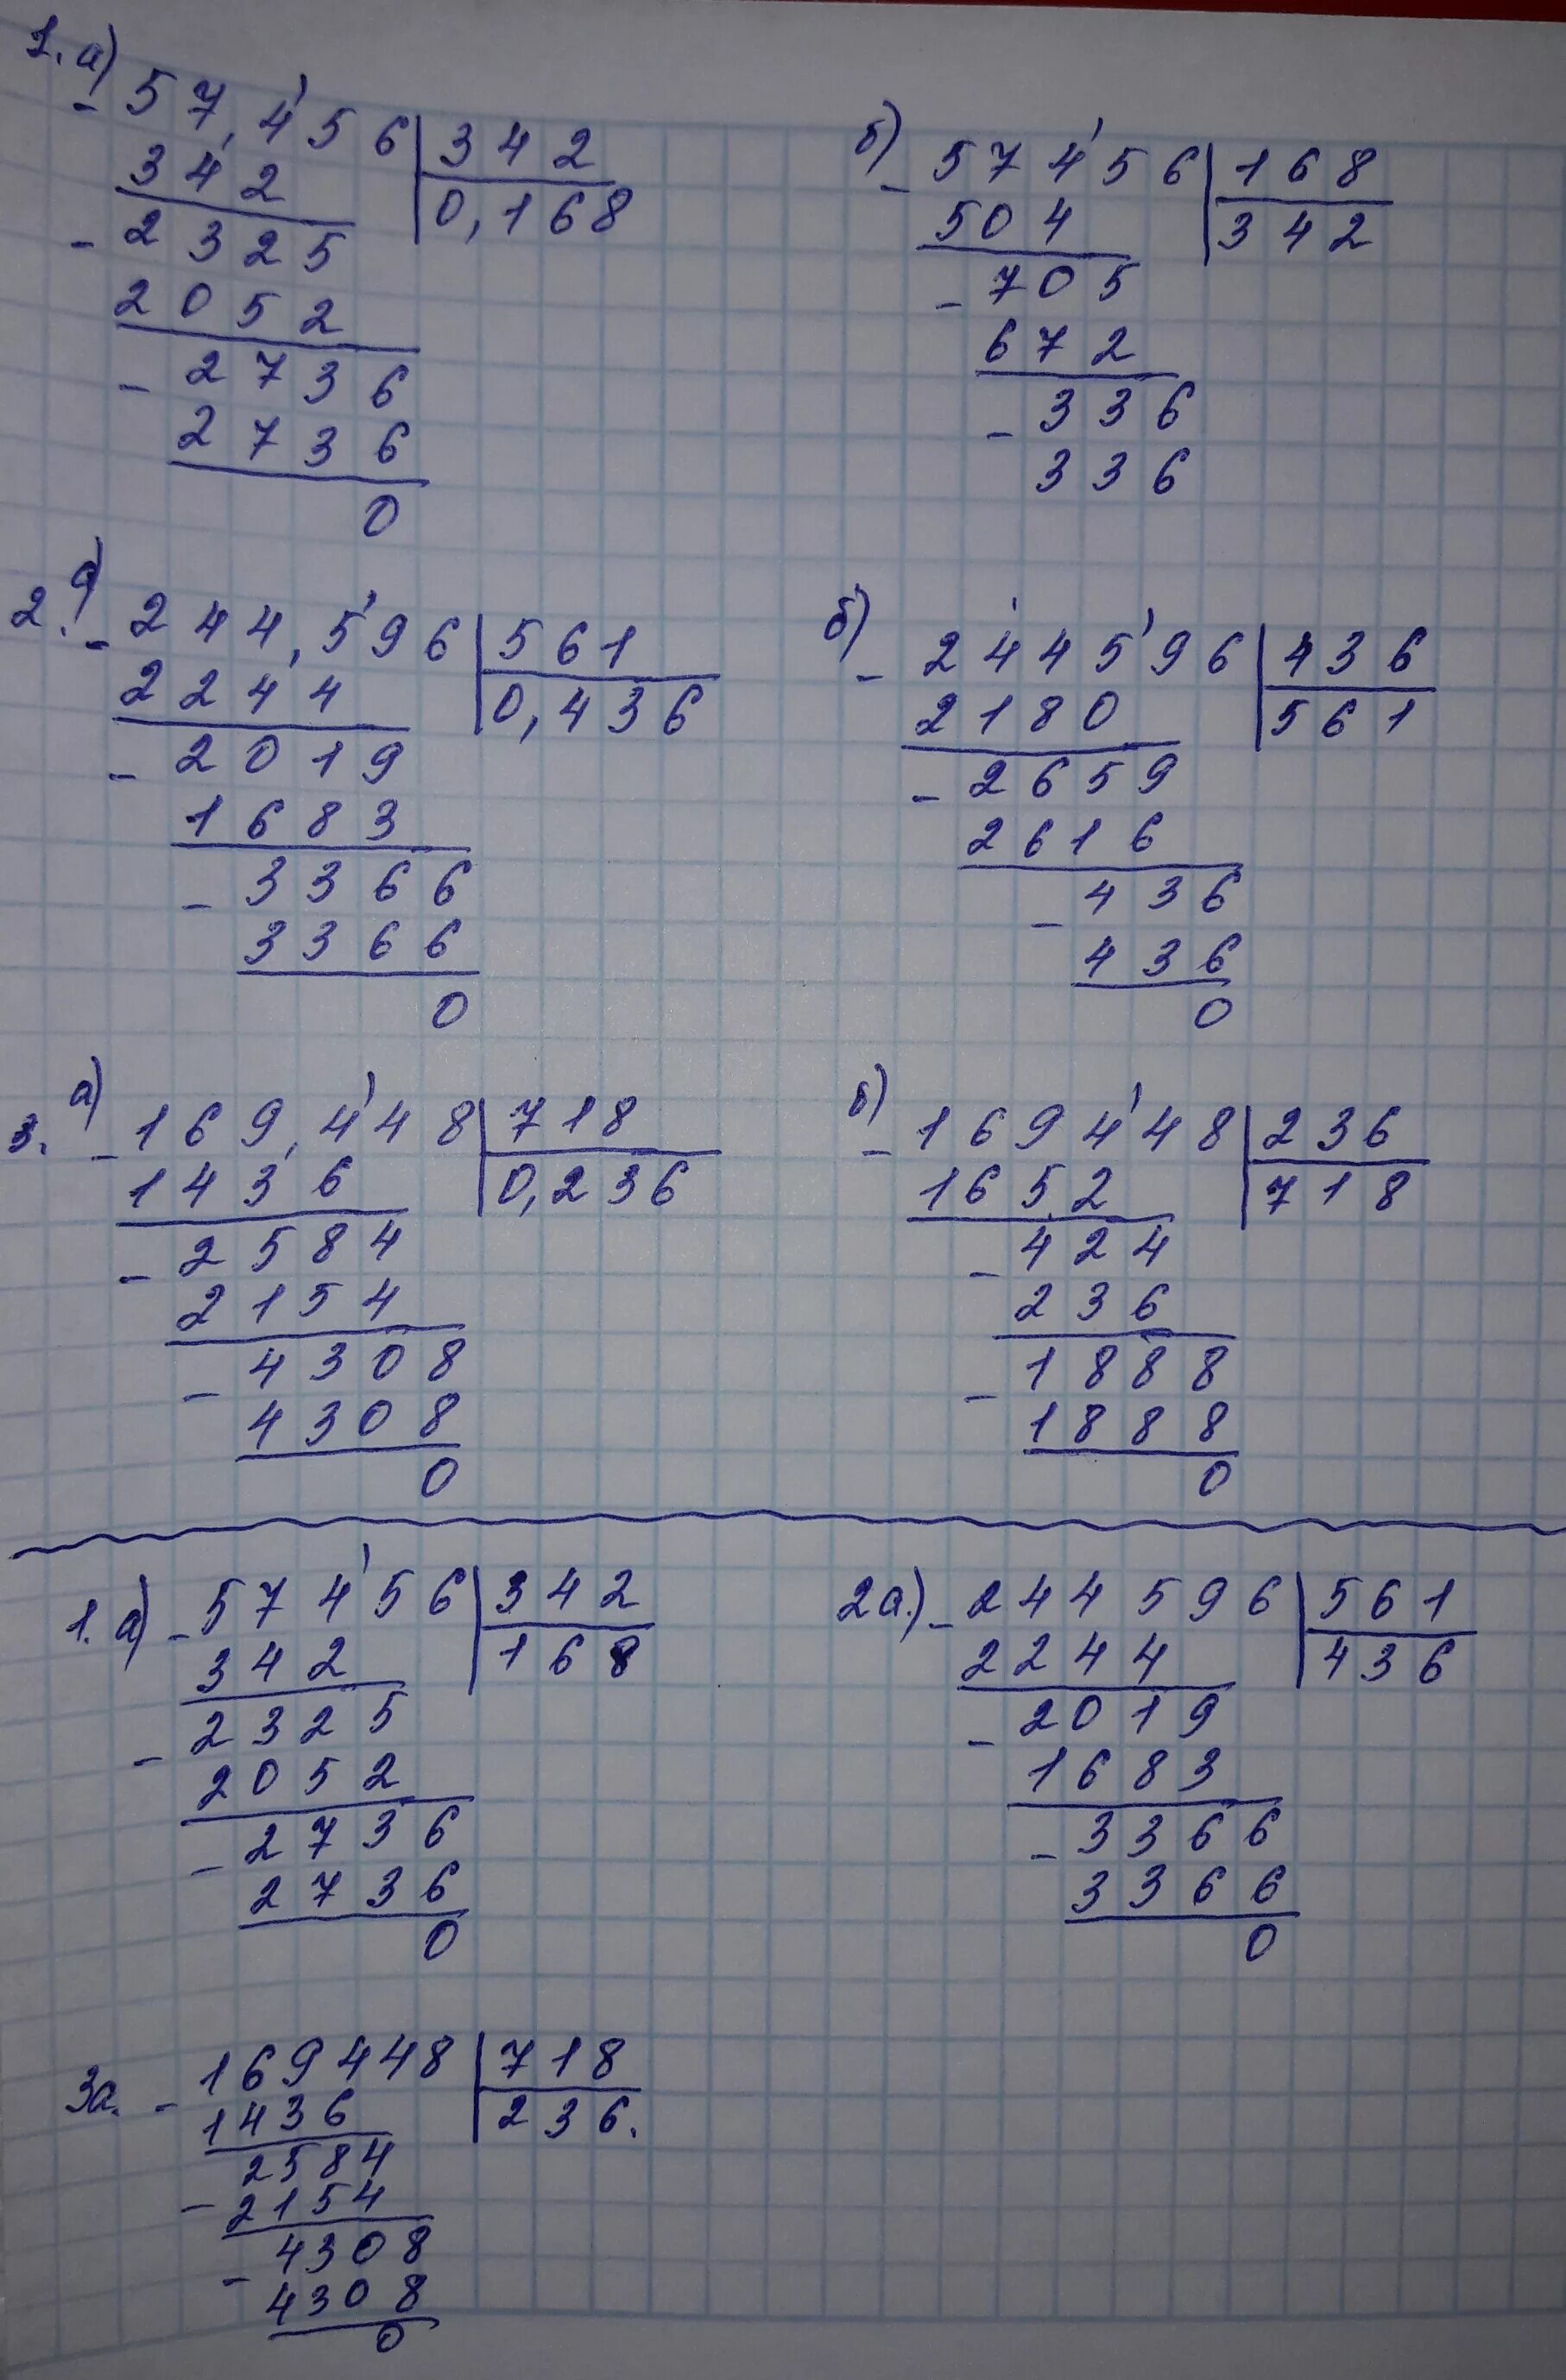 1. а)
- 57,4'56 | 342
342 | 0,168
- 2325
2052
- 2736
2736
0
б)
- 574'56 | 168
504 | 342
- 705
672
- 336
336
2. а)
- 244,5'96 | 561
2244 | 0,436
- 2019
1683
- 3366
3366
0
б)
- 24'45'96 | 436
2180 | 561
- 2659
2616
- 436
436
0
3. а)
- 169,4'48 | 718
1436 | 0,236
- 2584
2154
- 4308
4308
0
б)
- 1694'48 | 236
1652 | 718
- 424
236
- 1888
1888
0
1. а) - 574'56 | 342
342 | 168
- 2325
2052
- 2736
2736
0
2а.) - 244596 | 561
2244 | 436
- 2019
1683
- 3366
3366
0
3а. - 169448 | 718
1436 | 236.
2584
- 2154
4308
- 4308
0